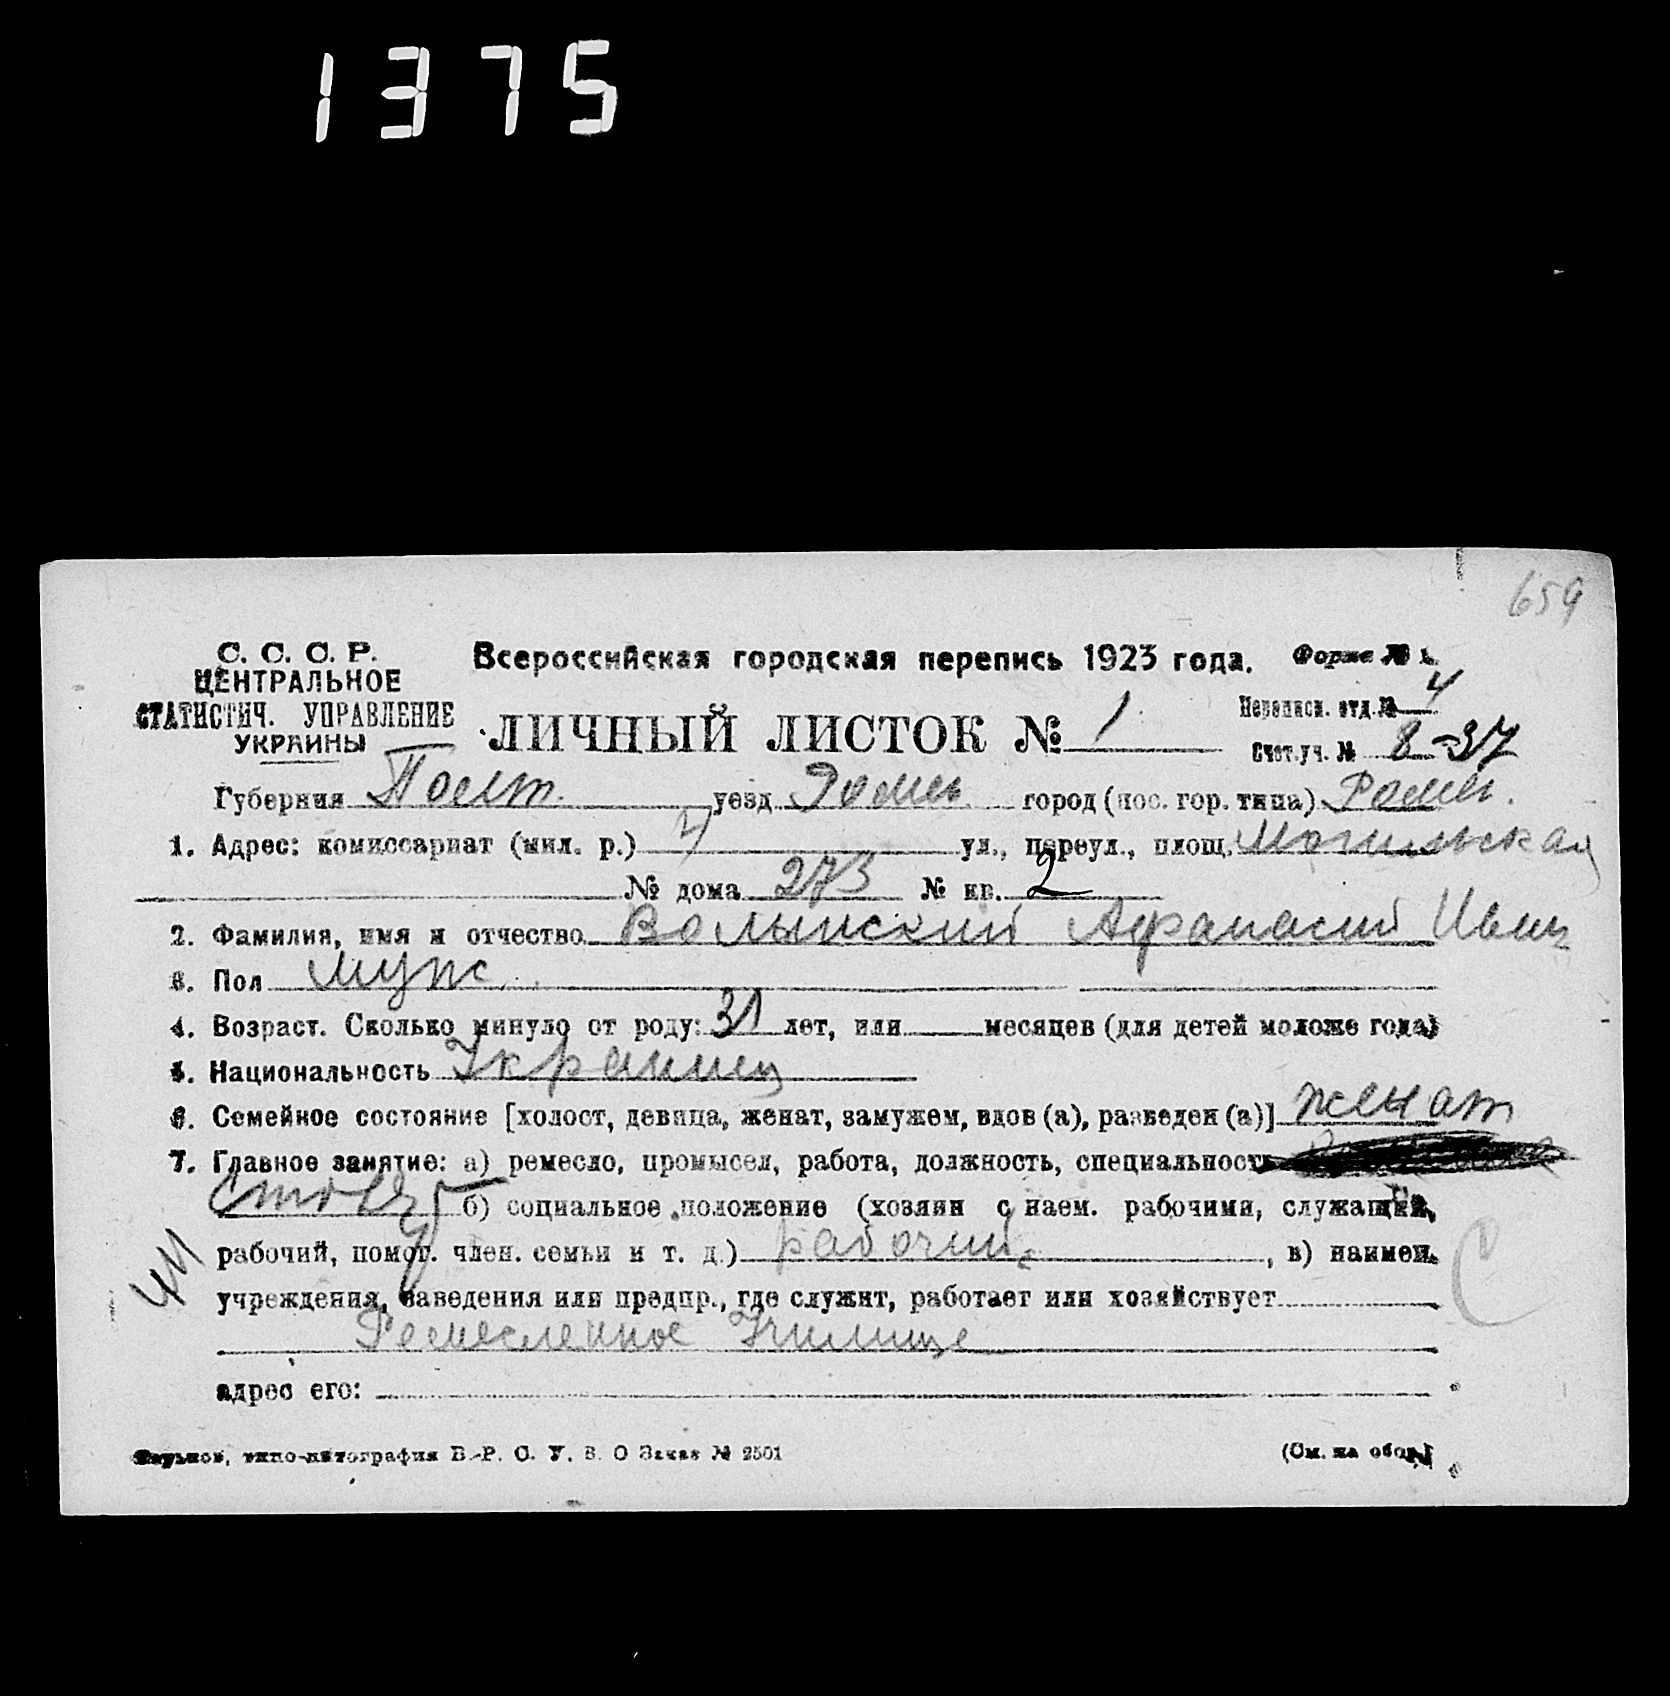 1375
659
С. С. С. Р.
ЦЕНТРАЛЬНОЕ
СТАТИСТИЧ. УПРАВЛЕНИЕ
УКРАИНЫ
Всероссийская городская перепись 1923 года.
ЛИЧНЫЙ ЛИСТОК № 1
Форма №
Переписн. отд. № 4
Счет. уч. № 8-37
Губерния Полт. уезд Ромен город (пос. гор. типа) Ромен.
1. Адрес: комиссариат (мил. р.) 4 ул., переул., площ.
№ дома 273 № кв. 2
2. Фамилия, имя и отчество Волынский Афанасий Иван
3. Пол муж.
4. Возраст. Сколько минуло от роду: 31 лет, или месяцев (для детей моложе года)
5. Национальность Украинец
6. Семейное состояние [холост, девица, женат, замужем, вдов (а), разведен (а)] женат
7. Главное занятие: а) ремесло, промысел, работа, должность, специальность
Столяр б) социальное положение (хозяин с наем. рабочими, служащий,
рабочий, помог. член. семьи и т. д.) рабочий, в) наимен.
учреждения, заведения или предпр., где служит, работает или хозяйствует
Ремесленное Училище
адрес его:
Харьков, типо-литография В.-Р. С. У. В. О Заказ № 2501
(См. на обор.)